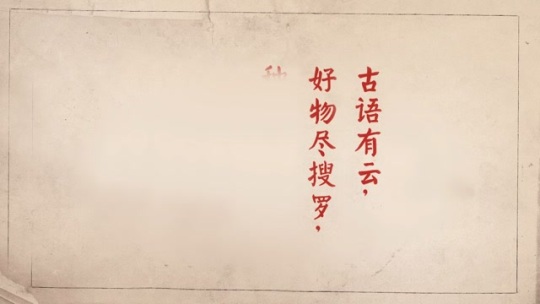 古语有云，
好物尽搜罗，